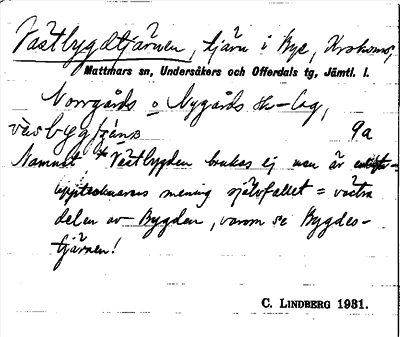 Västbygdtjärnen, tjärn i Bye, Krokoms,
Mattmars sn, Undersåkers och Offerdals tg, Jämtl. l.
Norrgårds o Nygårds sk-lag,
väsbygtjänn 9a
Namnet *Västbygden brukas ej men är enligt
upptecknarens mening självfallet = västra
delen av Bygden, varom se Bygdes-
tjärnen!
C. LINDBERG 1931.